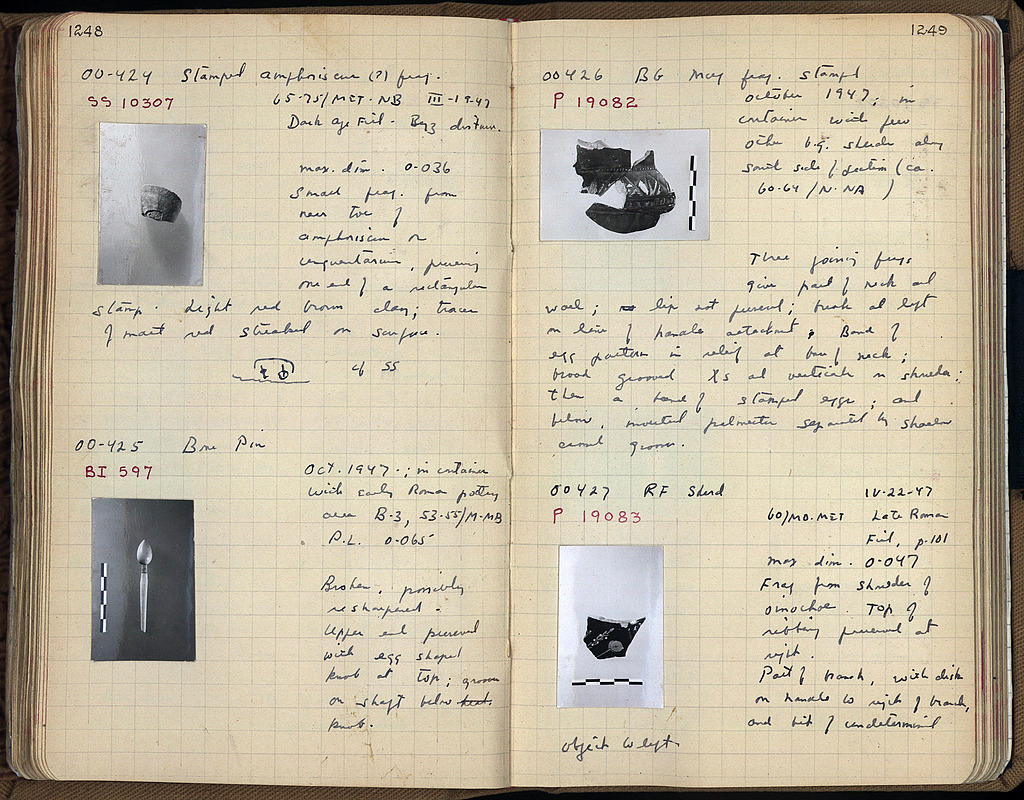 1248
OO-424 Stamped amphoriscus (?) frag.
SS 10307
65-75/MET-NB III-19-47
Dark age Fill - Byz disturb.
max. dim. 0-036
Small frag. from
near toe of
amphoriscus or
unguentarium, preserving
one end of a rectangular
stamp. Light red brown clay; traces
of matt red streaked on surface.
cf SS
OO-425 Bone Pin
BI 597
Oct. 1947; in container
with early Roman pottery
area B-3, 53-55/M-MB
P.L. 0-065
Broken, possibly
resharpened.
Upper end preserved
with egg shaped
knob at top; groove
on shaft below
knob.
1249
OO426 BG Mug frag. stampd
P 19082
October 1947; in
container with few
other b.g. sherds along
south side of section (ca.
60-64/N-NA)
Three joining frags
give part of neck and
wall; lip not preserved; break at left
on line of handle attachment; Band of
egg pattern in relief at base of neck;
broad grooved Xs and verticals on shoulder;
then a band of stamped eggs; and
below, inverted palmettes separated by shallow
groove.
OO427 RF Sherd IV-22-47
P 19083
60/MO.MET Late Roman
Fill, p.101
max dim. 0-047
Frag from shoulder of
oinochoe. Top of
ribbing preserved at
right.
Part of branch, with disk
on handle to right of branch,
and bit of undetermined
object to left.